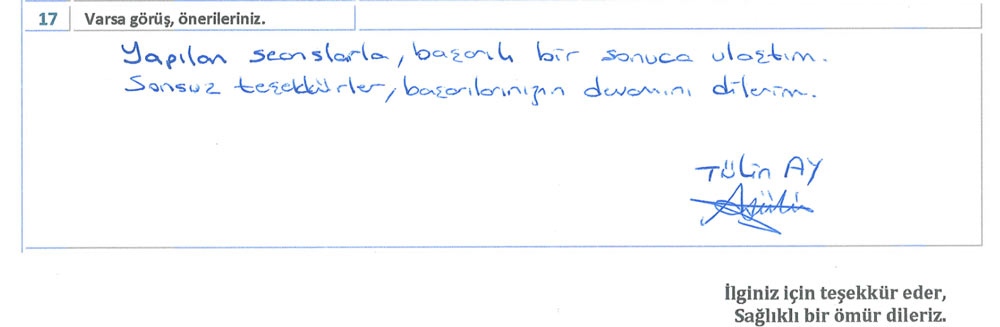 17 Varsa görüş, önerileriniz.
Yapılan seanslarla, başarılı bir sonuca ulaştım.
Sonsuz teşekkürler, başarılarınızın devamını dilerim.
Tülin AY
İlginiz için teşekkür eder,
Sağlıklı bir ömür dileriz.